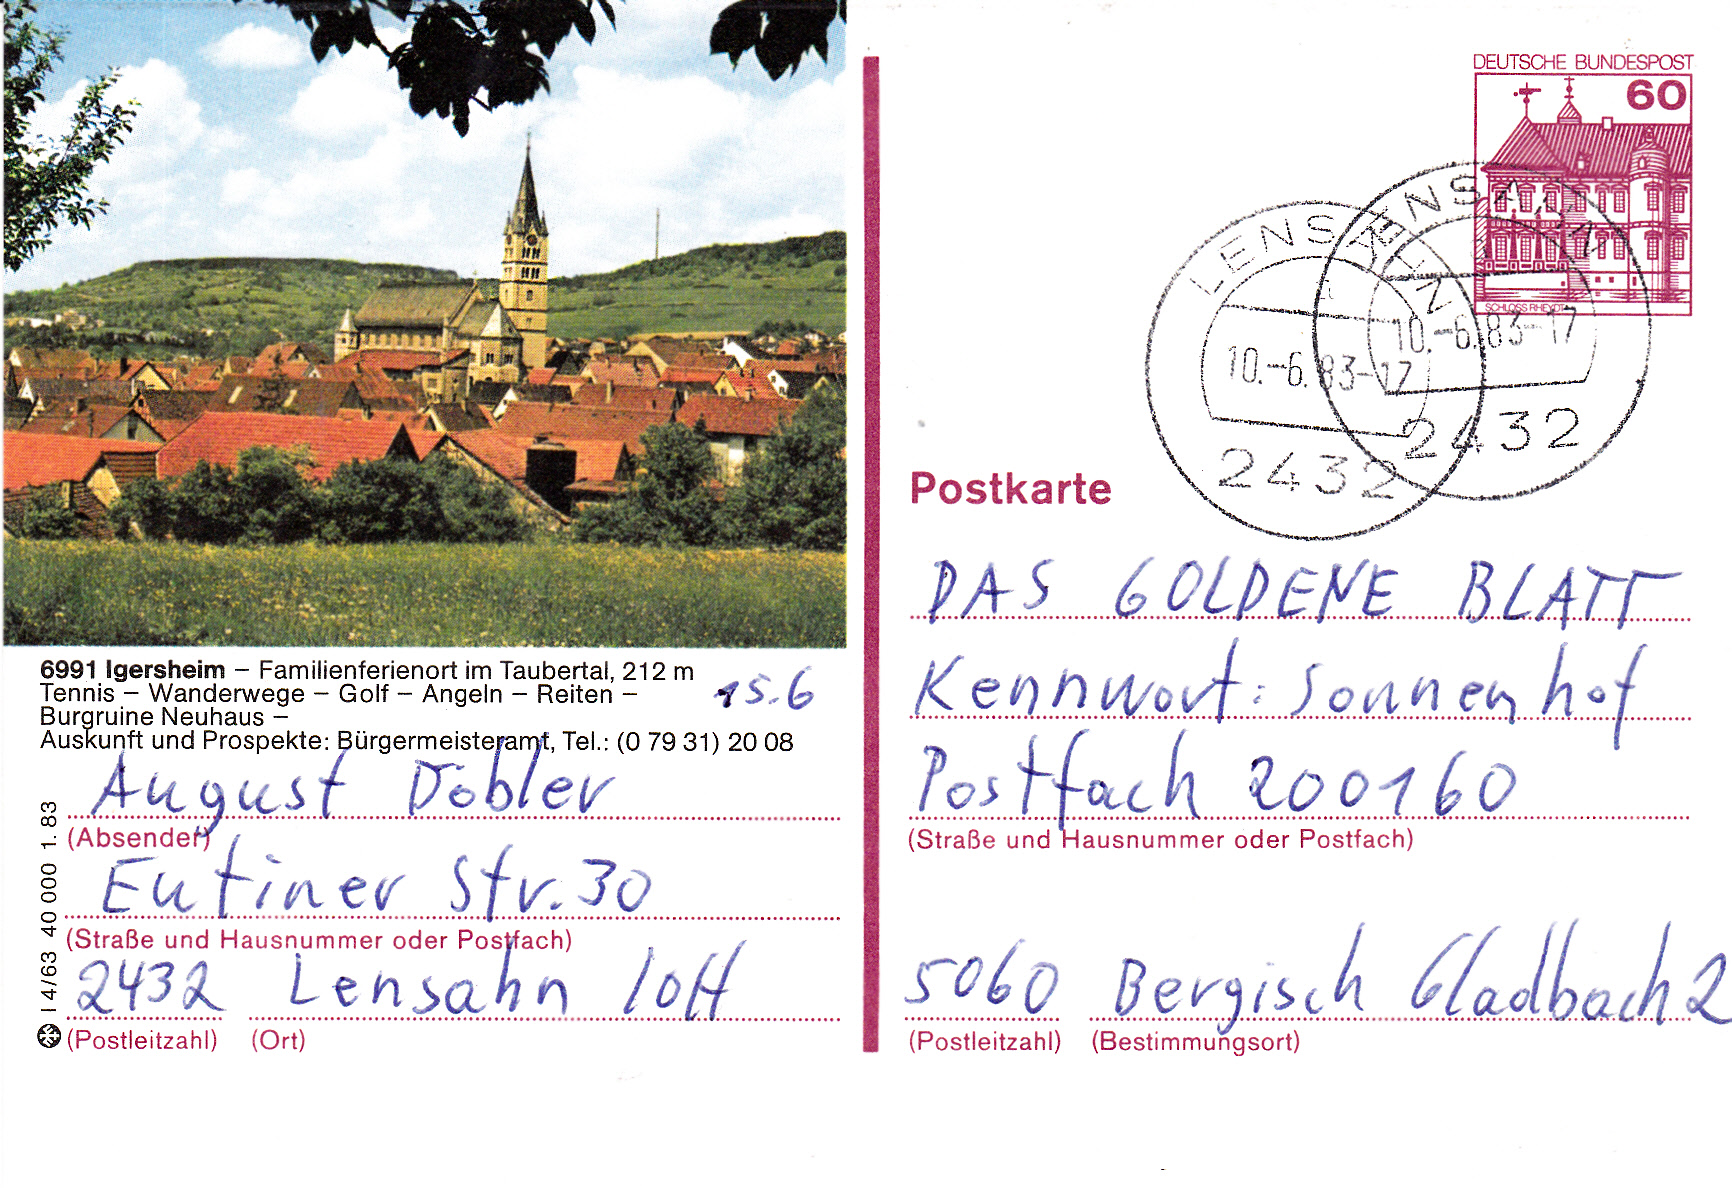 6991 Igersheim – Familienferienort im Taubertal, 212 m
Tennis – Wanderwege – Golf – Angeln – Reiten –
Burgruine Neuhaus –
Auskunft und Prospekte: Bürgermeisteramt, Tel.: (0 79 31) 20 08
15.6
August Döbler
(Absender)
Eutiner Str. 30
(Straße und Hausnummer oder Postfach)
2432 Lensahn
(Postleitzahl) (Ort)
I 4/63 40 000 1.83
DEUTSCHE BUNDESPOST
60
SCHLOSS RHEYDT
LENSAHN
10.-6.83-17
2432
LENSAHN
10.-6.83-17
2432
Postkarte
DAS GOLDENE BLATT
Kennwort: Sonnenhof
Postfach 200160
(Straße und Hausnummer oder Postfach)
5060 Bergisch Gladbach 2
(Postleitzahl) (Bestimmungsort)